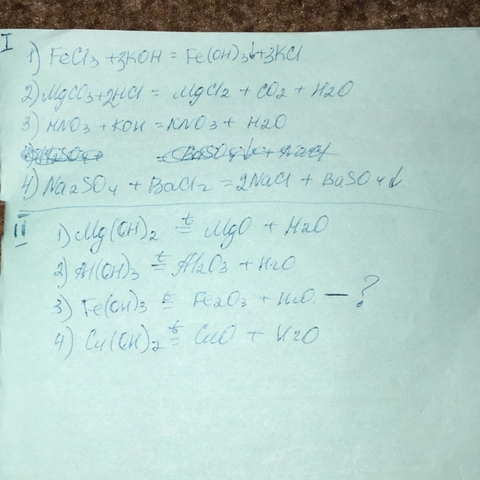 I
1) FeCl3 + 3KOH = Fe(OH)3↓ + 3KCl
2) MgCO3 + 2HCl = MgCl2 + CO2 + H2O
3) HNO3 + KOH = KNO3 + H2O
BaSO4↓ + NaCl
4) Na2SO4 + BaCl2 = 2NaCl + BaSO4↓
II
1) Mg(OH)2 t= MgO + H2O
2) Al(OH)3 t= Al2O3 + H2O
3) Fe(OH)3 t= Fe2O3 + H2O — ?
4) Cu(OH)2 t= CuO + H2O